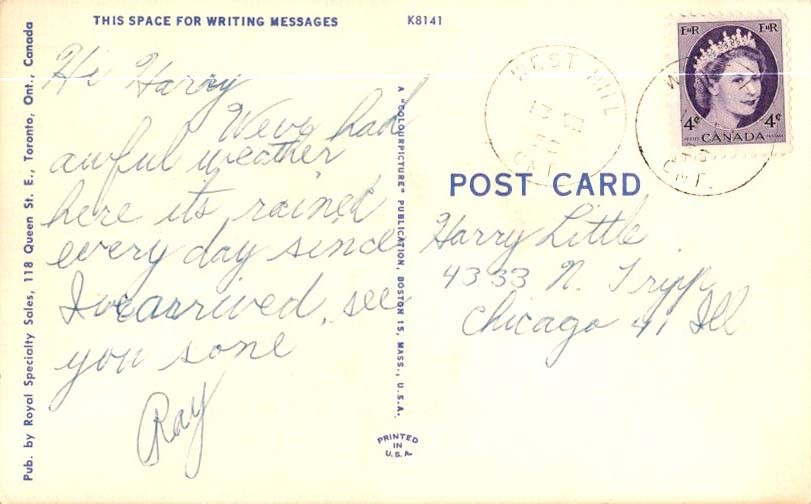 THIS SPACE FOR WRITING MESSAGES
K8141
Hi Harry
Weve had
awful weather
here its rained
every day since
I've arrived, see
you sone
Ray
Pub. by Royal Specialty Sales, 118 Queen St. E., Toronto, Ont., Canada
A "COLOURPICTURE" PUBLICATION, BOSTON 15, MASS., U.S.A.
PRINTED
IN
U.S.A.
WEST HILL
ONT.
EIIR EIIR
4¢ 4¢
POSTES POSTAGE
CANADA
W
ONT.
POST CARD
Harry Little
4333 N. Tripp
Chicago 41 Ill